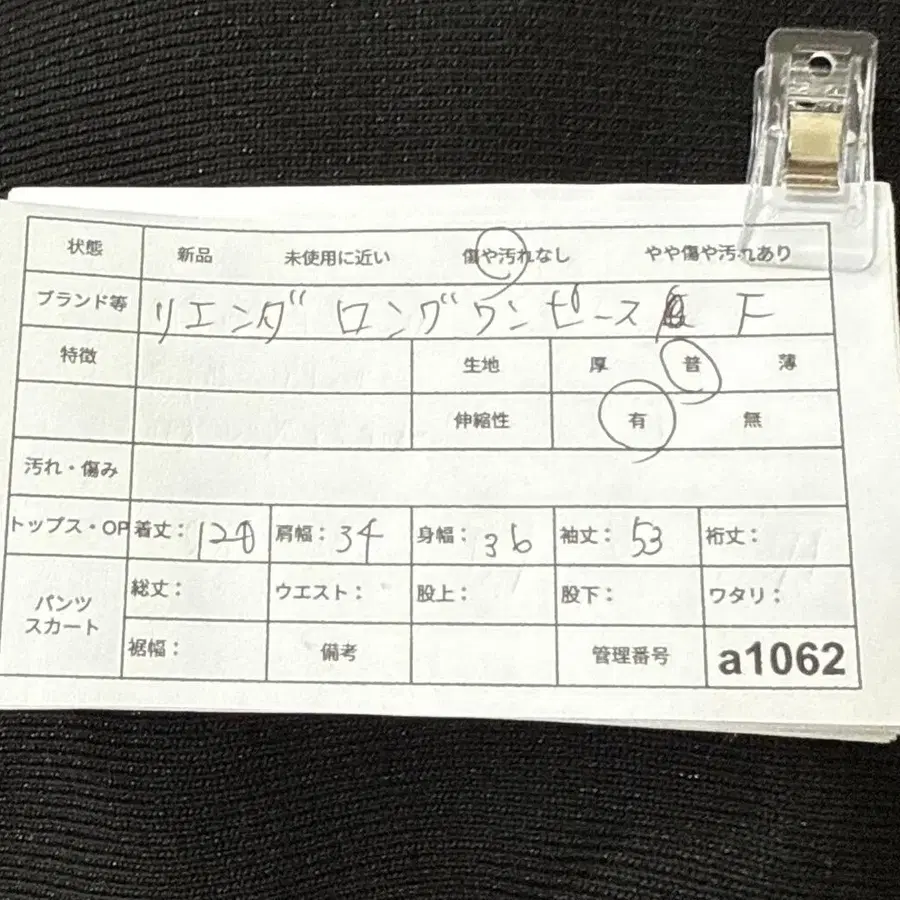 状態 新品 未使用に近い 傷や汚れなし やや傷や汚れあり
ブランド等 リエンダ ロングワンピース F
特徴 生地 厚 普 薄
伸縮性 有 無
汚れ・傷み
トップス・OP 着丈： 肩幅：34 身幅：36 袖丈：53 裄丈：
パンツ スカート 総丈： ウエスト： 股上： 股下： ワタリ：
裾幅： 備考 管理番号 a1062